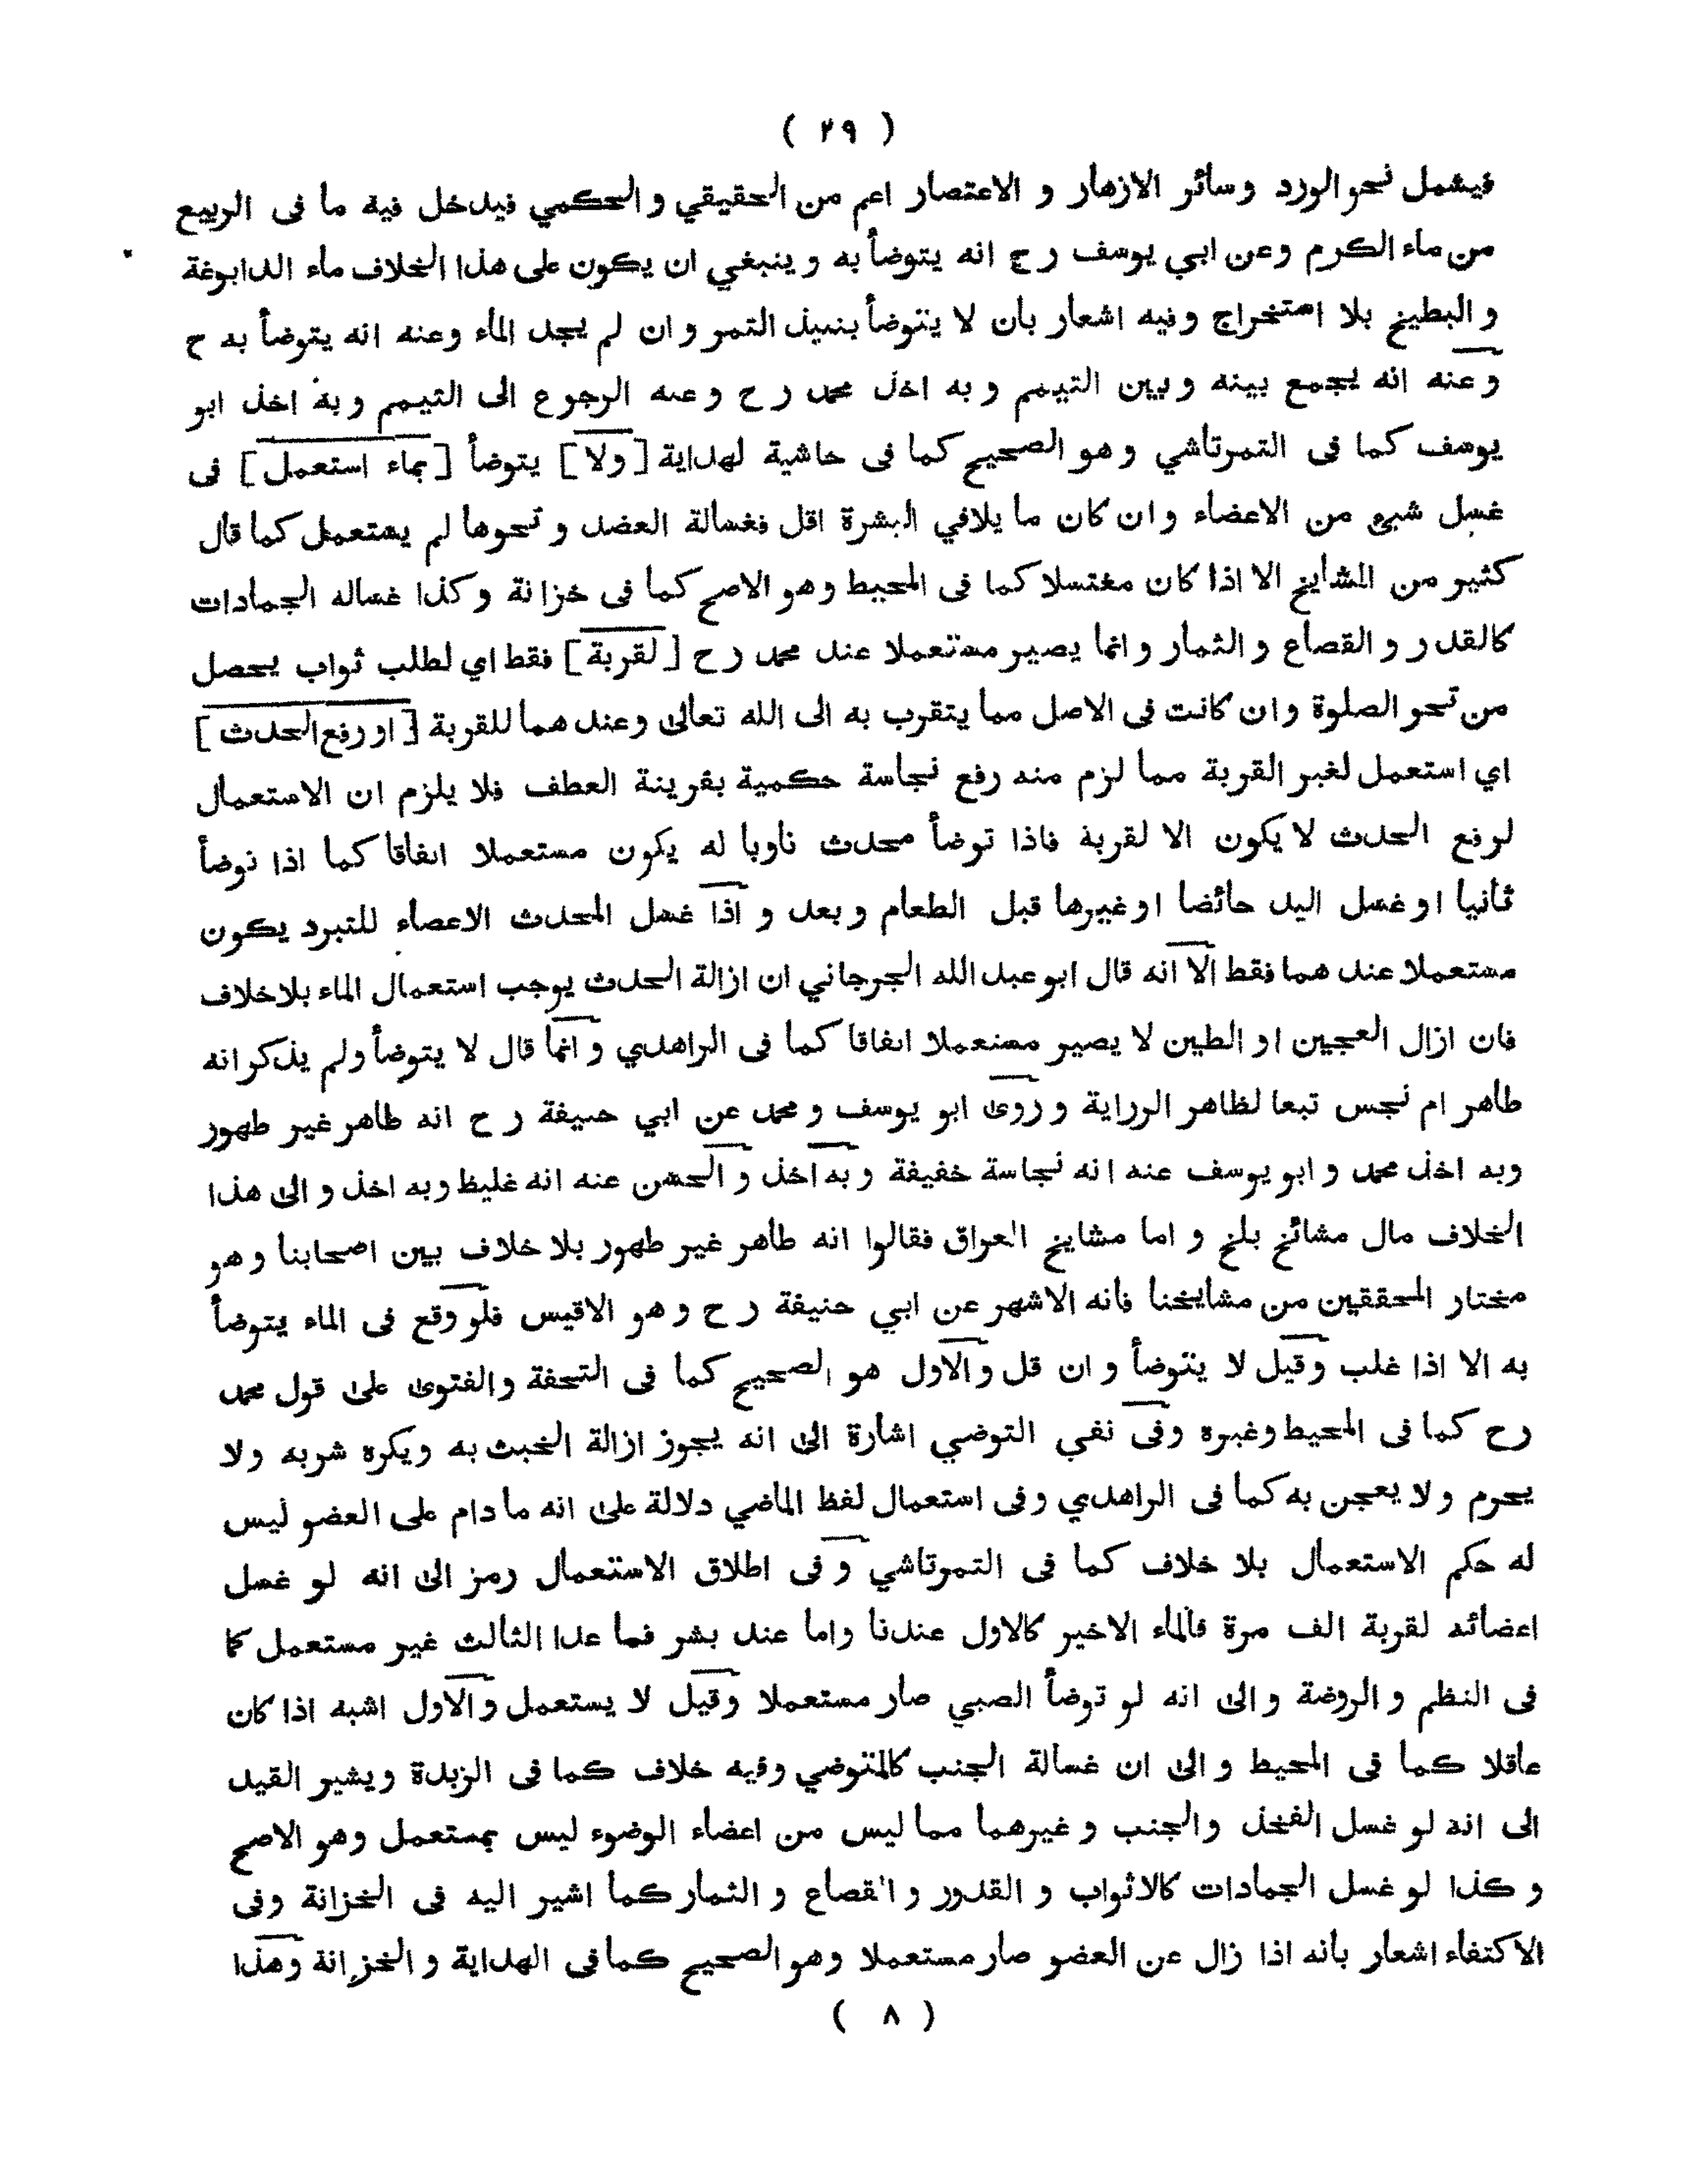 ( ٢٩ )
فيشمل نحو الورد وسائر الازهار و الاعتصار اعم من الحقيقي و الحكمي فيدخل فيه ما فى الربيع
من ماء الكرم وعن ابي يوسف رح انه يتوضأ به وينبغي ان يكون على هذا الخلاف ماء الدابوغة
و البطيخ بلا استخراج وفيه اشعار بان لا يتوضأ بنبيذ التمر و ان لم يجد الماء وعنه انه يتوضأ به ح
وعنه انه يجمع بينه وبين التيمم و به اخذ محمد رح وعنه الرجوع الى التيمم وبه اخذ ابو
يوسف كما فى التمرتاشي وهو الصحيح كما فى حاشية لهداية [ولا] يتوضأ [بماء استعمل] فى
غسل شيئ من الاعضاء وان كان ما يلاقي البشرة اقل فغسالة العضد و نحوها لم يستعمل كما قال
كثير من المشايخ الا اذا كان مغتسلا كما فى المحيط وهو الاصح كما فى خزانة وكذا غساله الجمادات
كالقدر و القصاع و الثمار وانما يصير مستعملا عند محمد رح [لقربة] فقط اي لطلب ثواب يحصل
من نحو الصلوة وان كانت فى الاصل مما يتقرب به الى الله تعالى وعند هما للقربة [او رفع الحدث]
اي استعمل لغير القربة مما لزم منه رفع نجاسة حكمية بقرينة العطف فلا يلزم ان الاستعمال
لرفع الحدث لا يكون الا لقربة فاذا توضأ محدث ناويا له يكون مستعملا اتفاقا كما اذا توضأ
ثانيا او غسل اليد حائضا اوغيرها قبل الطعام وبعد و اذا غسل المحدث الاعضاء للتبرد يكون
مستعملا عند هما فقط الا انه قال ابو عبد الله الجرجاني ان ازالة الحدث يوجب استعمال الماء بلاخلاف
فان ازال العجين او الطين لا يصير مستعملا اتفاقا كما فى الزاهدي وانما قال لا يتوضأ ولم يذكر انه
طاهر ام نجس تبعا لظاهر الرراية وروى ابو يوسف و محمد عن ابي حنيفة رح انه طاهر غير طهور
وبه اخذ محمد و ابو يوسف عنه انه نجاسة خفيفة وبه اخذ و الحسن عنه انه غليظ وبه اخذ و الى هذا
الخلاف مال مشائخ بلخ و اما مشايخ العراق فقالوا انه طاهر غير طهور بلا خلاف بين اصحابنا وهو
مختار المحققين من مشايخنا فانه الاشهر عن ابي حنيفة رح وهو الاقيس فلو وقع فى الماء يتوضأ
به الا اذا غلب وقيل لا يتوضأ وان قل والاول هو الصحيح كما فى التحفة والفتوى على قول محمد
رح كما فى المحيط وغيره وفى نفي التوضي اشارة الى انه يجوز ازالة الخبث به ويكره شربه ولا
يحرم ولا يعجن به كما فى الزاهدي وفى استعمال لفظ الماضي دلالة على انه ما دام على العضو ليس
له حكم الاستعمال بلا خلاف كما فى التمرتاشي وفى اطلاق الاستعمال رمز الى انه لو غسل
اعضائه لقربة الف مرة فالماء الاخير كالاول عندنا واما عند بشر فما عدا الثالث غير مستعمل كما
فى النظم و الروضة و الى انه لو توضأ الصبي صار مستعملا وقيل لا يستعمل والاول اشبه اذا كان
عاقلا كما فى المحيط و الى ان غسالة الجنب كالمتوضي وفيه خلاف كما فى الزبدة ويشير القيد
الى انه لو غسل الفخذ والجنب و غيرهما مما ليس من اعضاء الوضوء ليس بمستعمل وهو الاصح
و كذا لو غسل الجمادات كالاثواب و القدور و القصاع و الثمار كما اشير اليه فى الخزانة وفى
الاكتفاء اشعار بانه اذا زال عن العضو صار مستعملا وهو الصحيح كما فى الهداية و الخزانة وهذا
( ٨ )